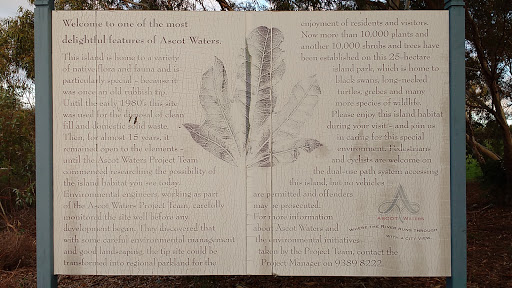 Welcome to one of the most
delightful features of Ascot Waters.
This island is home to a variety
of native flora and fauna and is
particularly special – because it
was once an old rubbish tip.
Until the early 1980s, this site
was used for the disposal of clean
fill and domestic solid waste.
Then, for almost 15 years, it
remained open to the elements –
until the Ascot Waters Project Team
commenced researching the possibility of
the island habitat you see today.
Environmental engineers, working as part
of the Ascot Waters Project Team, carefully
monitored the site well before any
development began. They discovered that
with some careful environmental management
and good landscaping, the tip site could be
transformed into regional parkland for the
enjoyment of residents and visitors.
Now more than 10,000 plants and
another 10,000 shrubs and trees have
been established on this 25-hectare
island park, which is home to
black swans, long-necked
turtles, grebes and many
more species of wildlife.
Please enjoy this island habitat
during your visit – and join us
in caring for this special
environment. Pedestrians
and cyclists are welcome on
the dual-use path system accessing
this island, but no vehicles
are permitted and offenders
may be prosecuted.
For more information
about Ascot Waters and
the environmental initiatives
taken by the Project Team, contact the
Project Manager on 9389 8222.
ASCOT WATERS
WHERE THE RIVER RUNS THROUGH
WITH A CITY VIEW